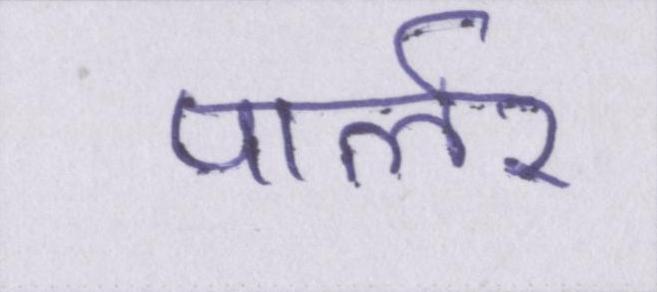 पार्लर